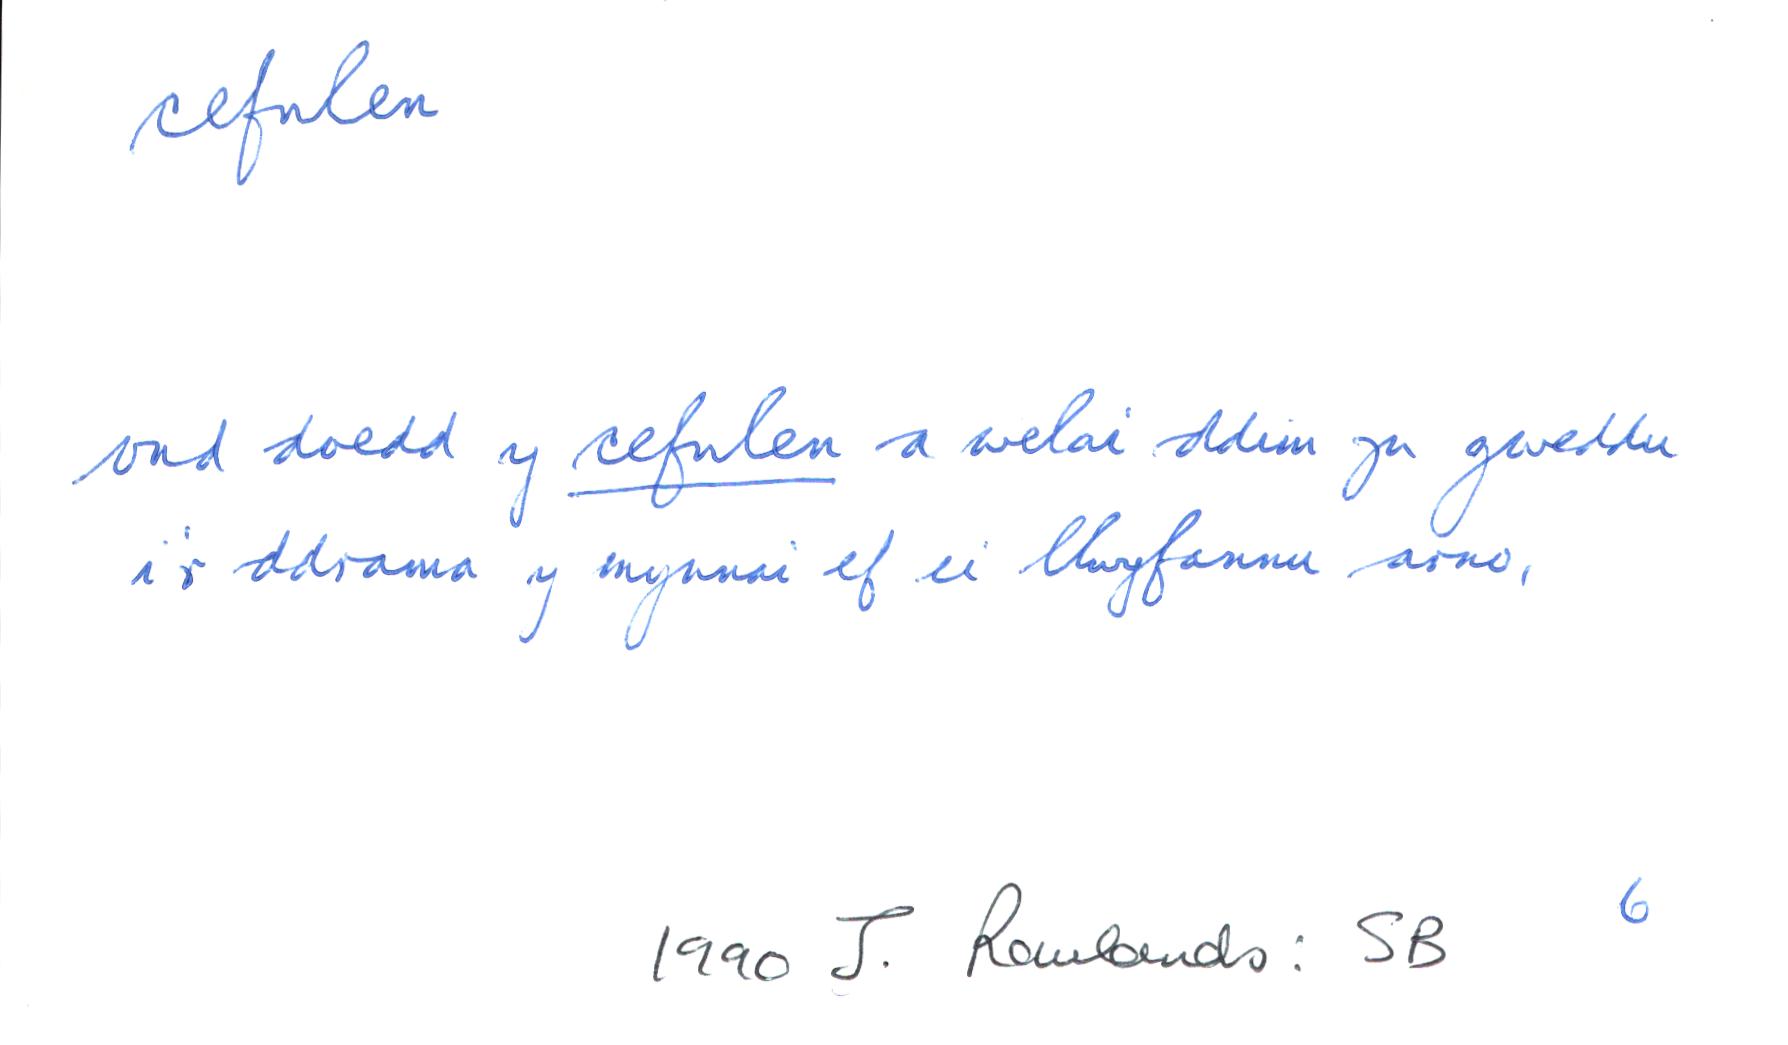 cefnlen
ond doedd y cefnlen a welai ddim yn gweddu
i'r ddrama y mynnai ef ei llwyfannu arno,
6
1990 J. Rowlands: SB